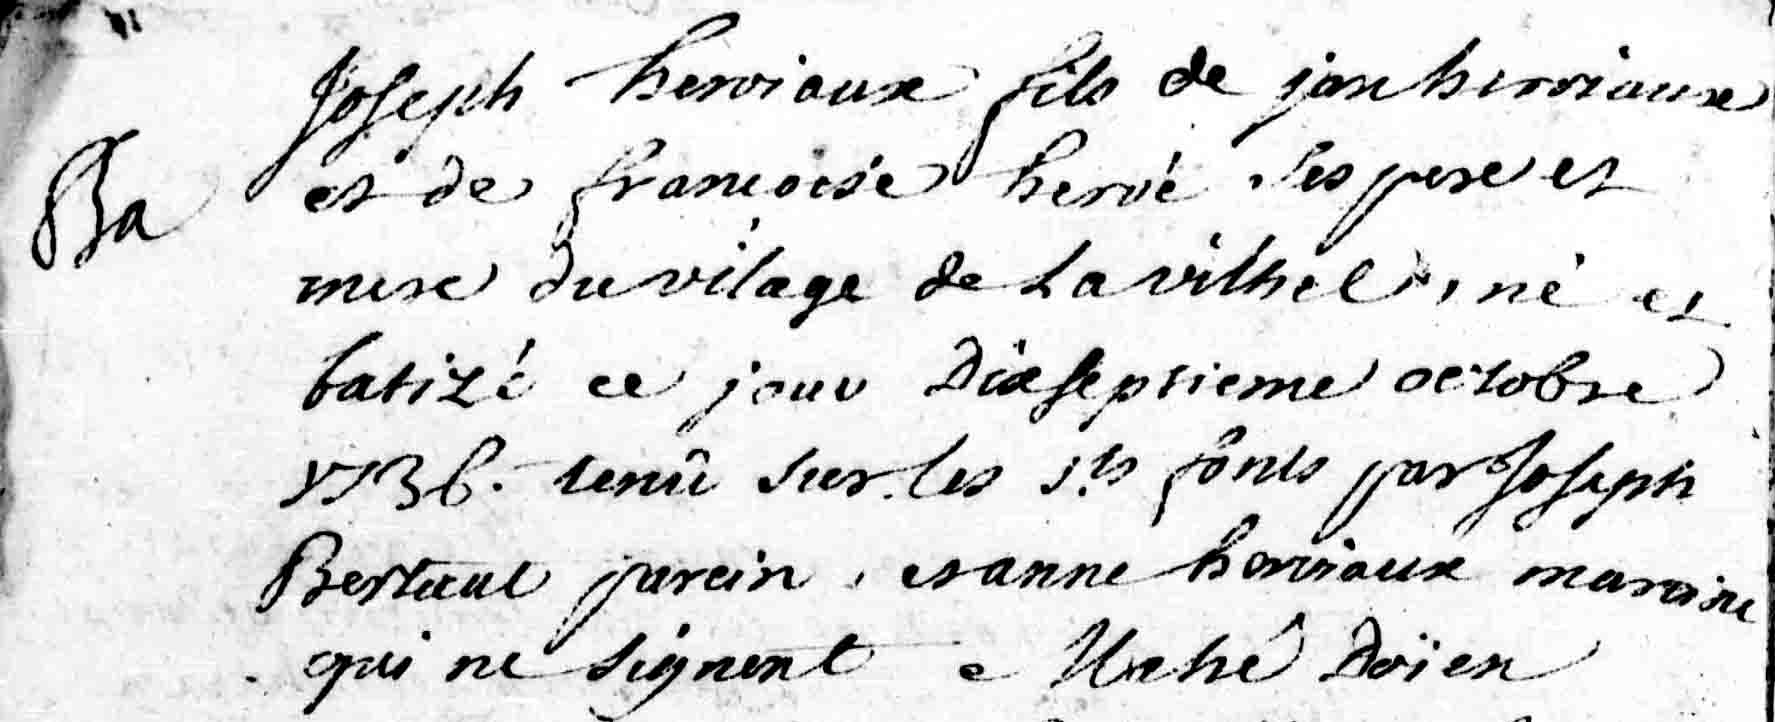 Joseph herviaux fils de jan herviaux
Ba
et de francoise hervé ses pere et
mere du vilage de La vilhel, né et
batizé ce jour Dixseptieme octobre
1736. tenû sur les sts fonts par Joseph
Bertaut parein, et anne herviaux maraine
qui ne signent Doïen